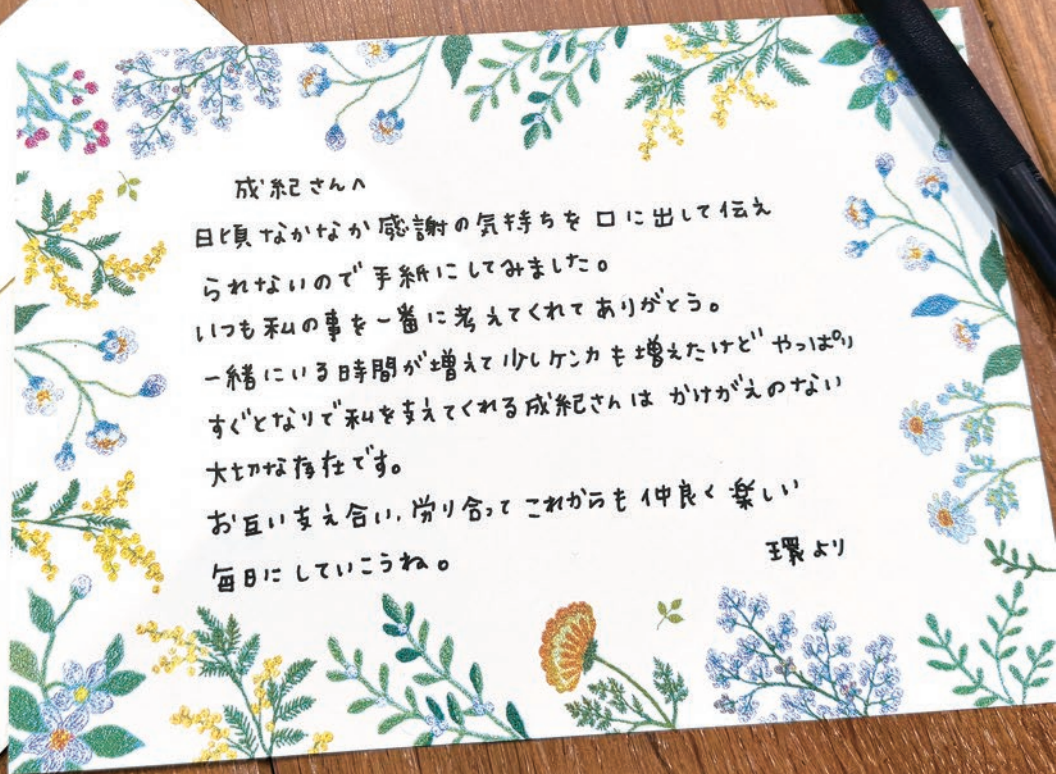 成紀さんへ
日頃なかなか感謝の気持ちを口に出して伝え
られないので手紙にしてみました。
いつも私の事を一番に考えてくれてありがとう。
一緒にいる時間が増えて少しケンカも増えたけどやっぱり
すぐとなりで私を支えてくれる成紀さんはかけがえのない
大切な存在です。
お互い支え合い、労り合ってこれからも仲良く楽しい
毎日にしていこうね。
環より